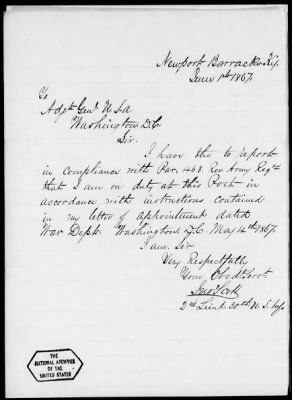 Newport Barracks Ky.
June 1st 1867.
To
Adgt. Genl. U.S.A
Washington D.C.
Sir.
I have the to report
in compliance with Par. 468. Rev Army Regns
that I am on duty at this Post in
accordance with instructions contained
in my letter of appointment dated
War Dept. Washington, D.C. May 4th 1867.
I am Sir
Very Respectfully
Your Obedt Servt
2nd Lieut 30th U.S. Inf.
THE
NATIONAL ARCHIVES
OF THE
UNITED STATES